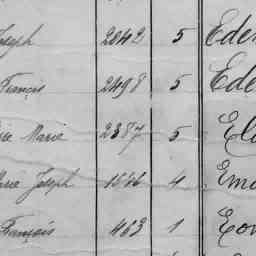 Joseph 2842 5 Ede
François 2498 5 Ede
Marie 2387 5 El
Marie Joseph 1686 4 Em
François 463 1 Eo